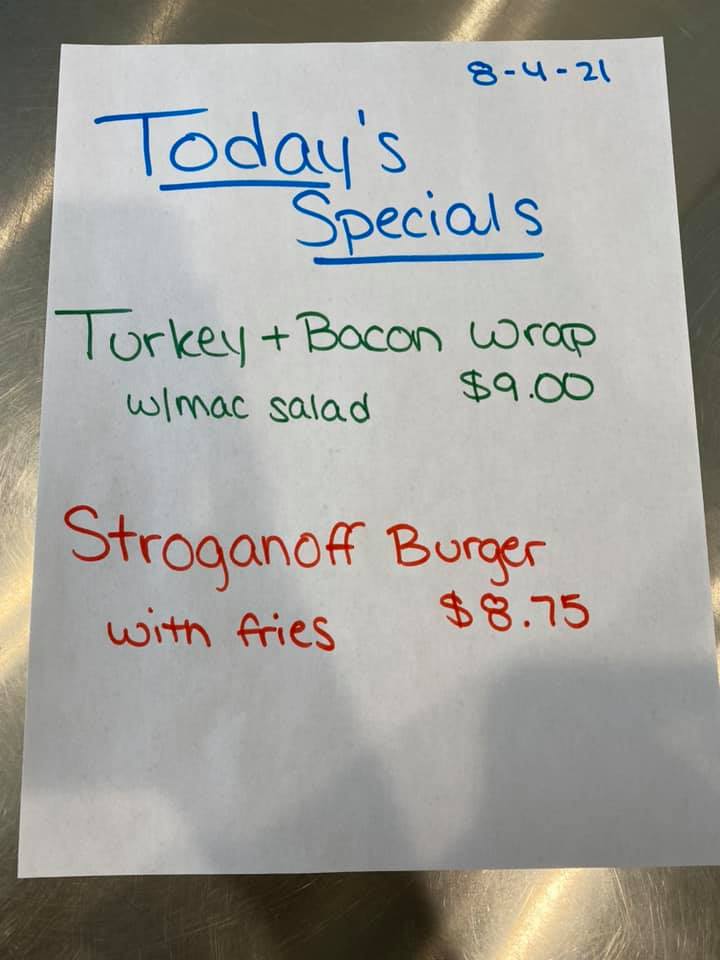 8-4-21
Today's
Specials
Turkey + Bacon wrap
w/mac salad $9.00
Stroganoff Burger
with fries $8.75